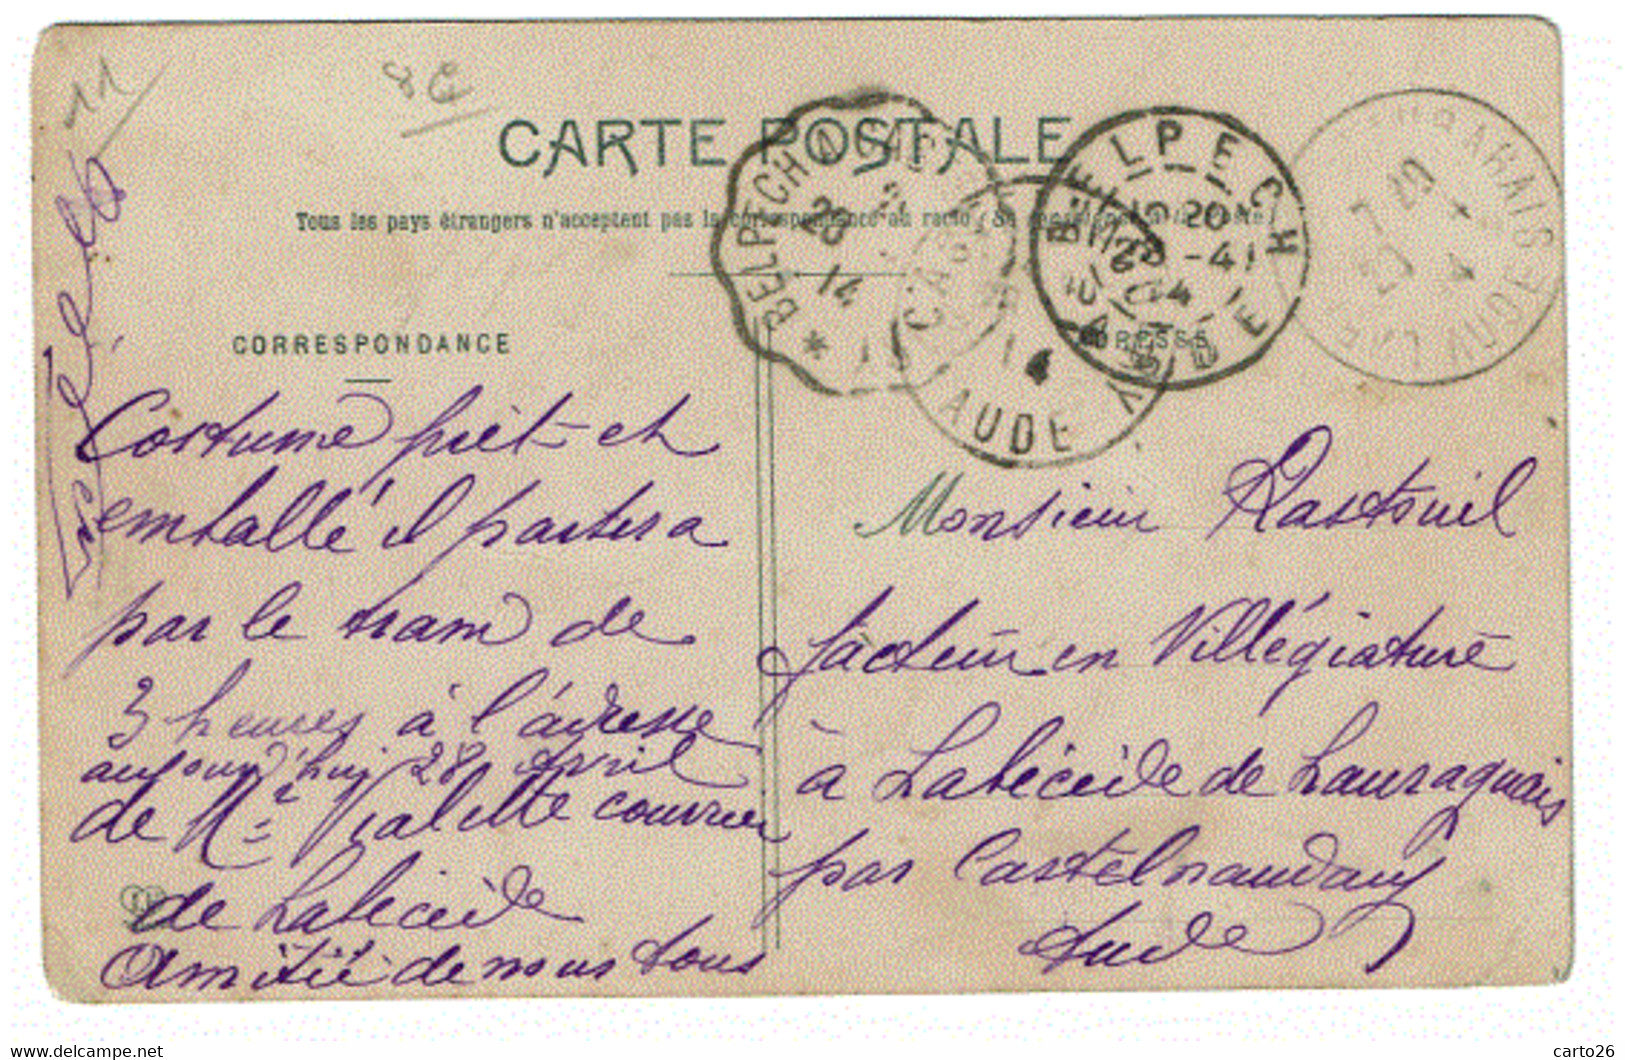 11
8€
CARTE POSTALE
Tous les pays étrangers n'acceptent pas la correspondance au recto (Se renseigner à la Poste)
BELPECH A CAST
28
14
BELPECH
10 20
28 -4
14
AUDE
CAST
14
AUDE
7 30
29 4
AUDE
CORRESPONDANCE
ADRESSE
Costume prêt et
emballé il partira
par le tram de
3 heures à l'adresse
aujourd'hui 28 Avril
de Mr Vialette courrier
de Labécède
Amitié de nous tous
Monsieur Rastouil
facteur en Villégiature
à Labécède de Lauragnais
par Castelnaudary
Aude
www.delcampe.net
carto26